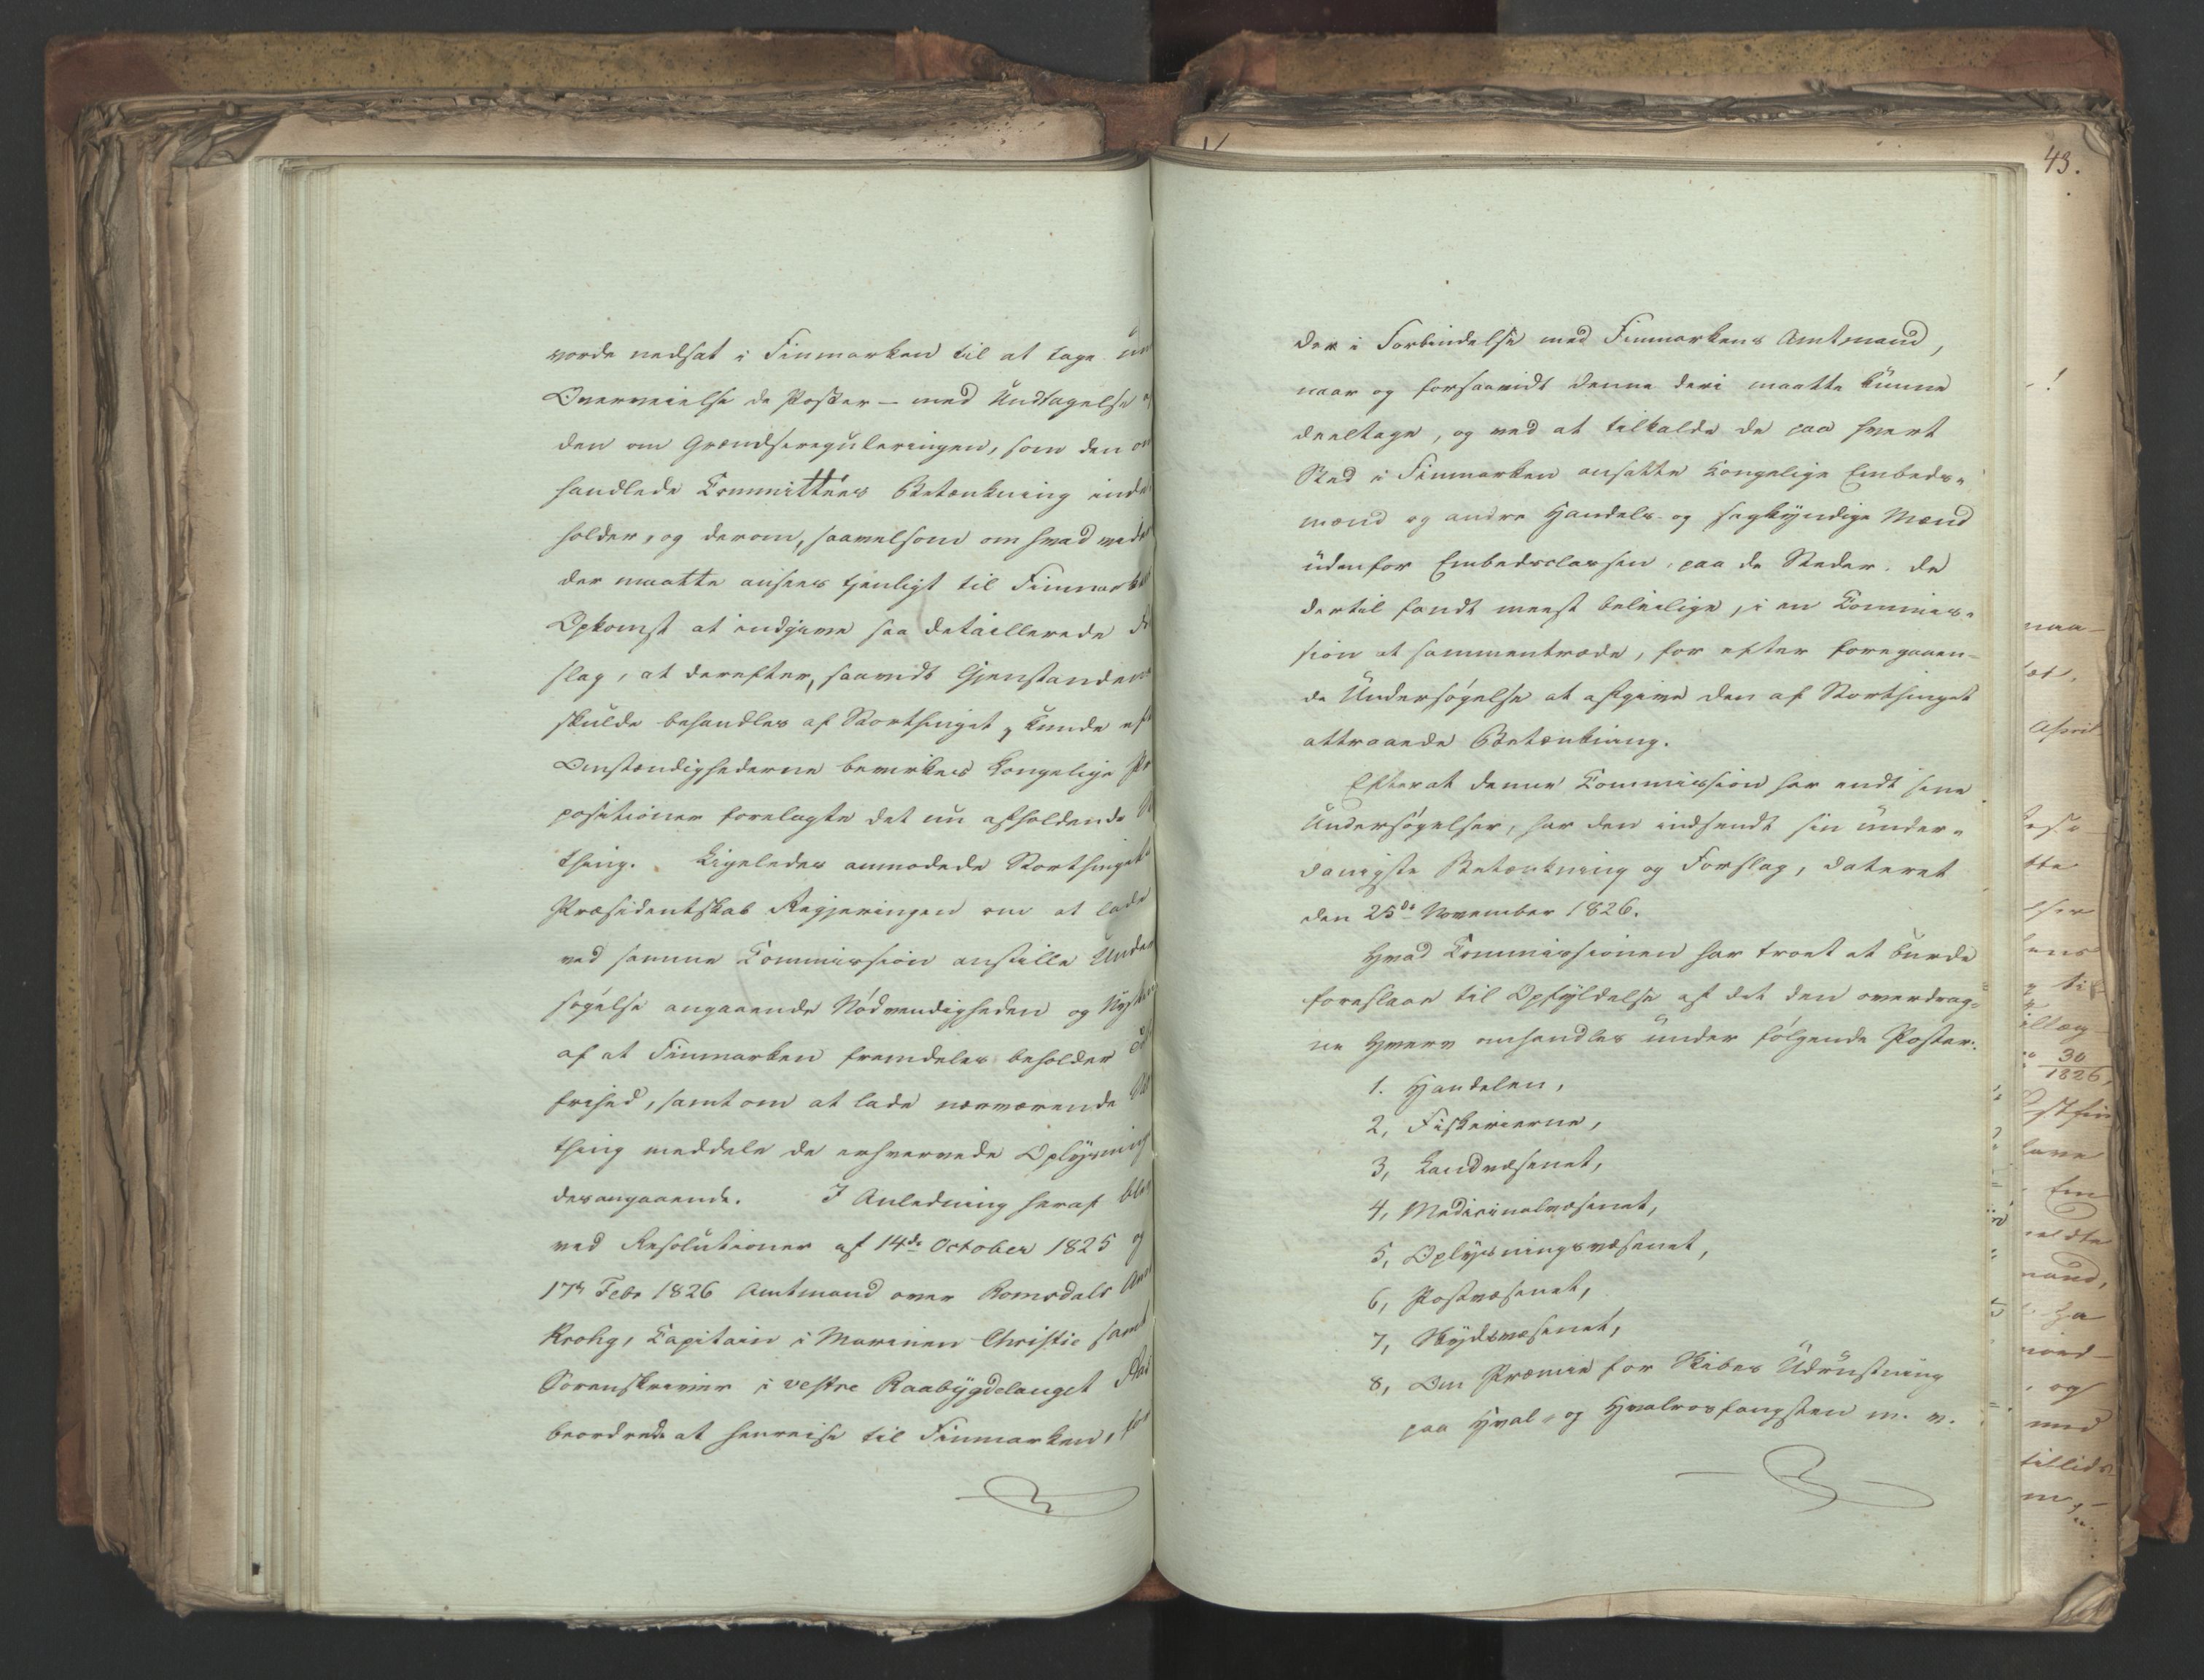 vorde nedsat i Finmarken til at tage un
Overveielse de Poster – med Undtagelse af
den om Grændsereguleringen, som den om
handlede Committées Betænkning inde
holder, og derom, saavelsom om hvad vider
der maatte ansees tjenligt til Finmark
Opkomst at indgive saa detaillerede
slag, at derefter, saavidt Gjenstanden
skulde behandles af Storthinget, kunde eft
Omstændighederne bevirkes Kongelige Pro
positioner forelagte det nu afholdende
thing. Ligeledes anmodede Storthingets
Præsidentskab Regjeringen om at lade
ved samme Commission anstille Under
søgelse angaaende Nödvendigheden og Nytten
af at Finmarken fremdeles beholder
frihed, samt om at lade nærværende
thing meddele de erhvervede Oplysning
desangaaende. I Anledning heraf blev
ved Resolutioner af 14de October 1825 og
17de Febr 1826 Amtmand over Romsdals Amt
Krohg, Capitain i Marinen Christie samt
Sorenskriver i vestre Raabygdelauget
beordrede at henreise til Finmarken, for
43.
der i Forbindelse med Finmarkens Amtmand,
naar og forsaavidt denne deri maatte kunne
deeltage, og ved at tilkalde de paa hvert
Sted i Finmarken ansatte Kongelige Embeds-
mænd og andre Handels- og sagkyndige Mænd
udenfor Embedsclassen, paa de Steder, de
dertil fandt meest beleilige, i en Commis-
sion at sammentræde, for efter foregaaen-
de Undersøgelse at afgive den af Storthinget
attraaede Betænkning.
Efterat denne Commission har endt sine
Undersøgelser, har den indsendt sin under-
danigste Betænkning og Forslag, dateret
den 25de November 1826.
Hvad Commissionen har troet at burde
foreslaae til Opfyldelse af det den overdrag-
ne Hverv omhandles under følgende Poster:
1. Handelen,
2, Fiskerierne,
3, Landvæsenet,
4, Medicinalvæsenet,
5, Oplysningsvæsenet,
6, Postvæsenet,
7, Skydsvæsenet,
8, Om Præmie for Skibes Udrustning
paa Hval- og Hvalrosfangsten m. v.